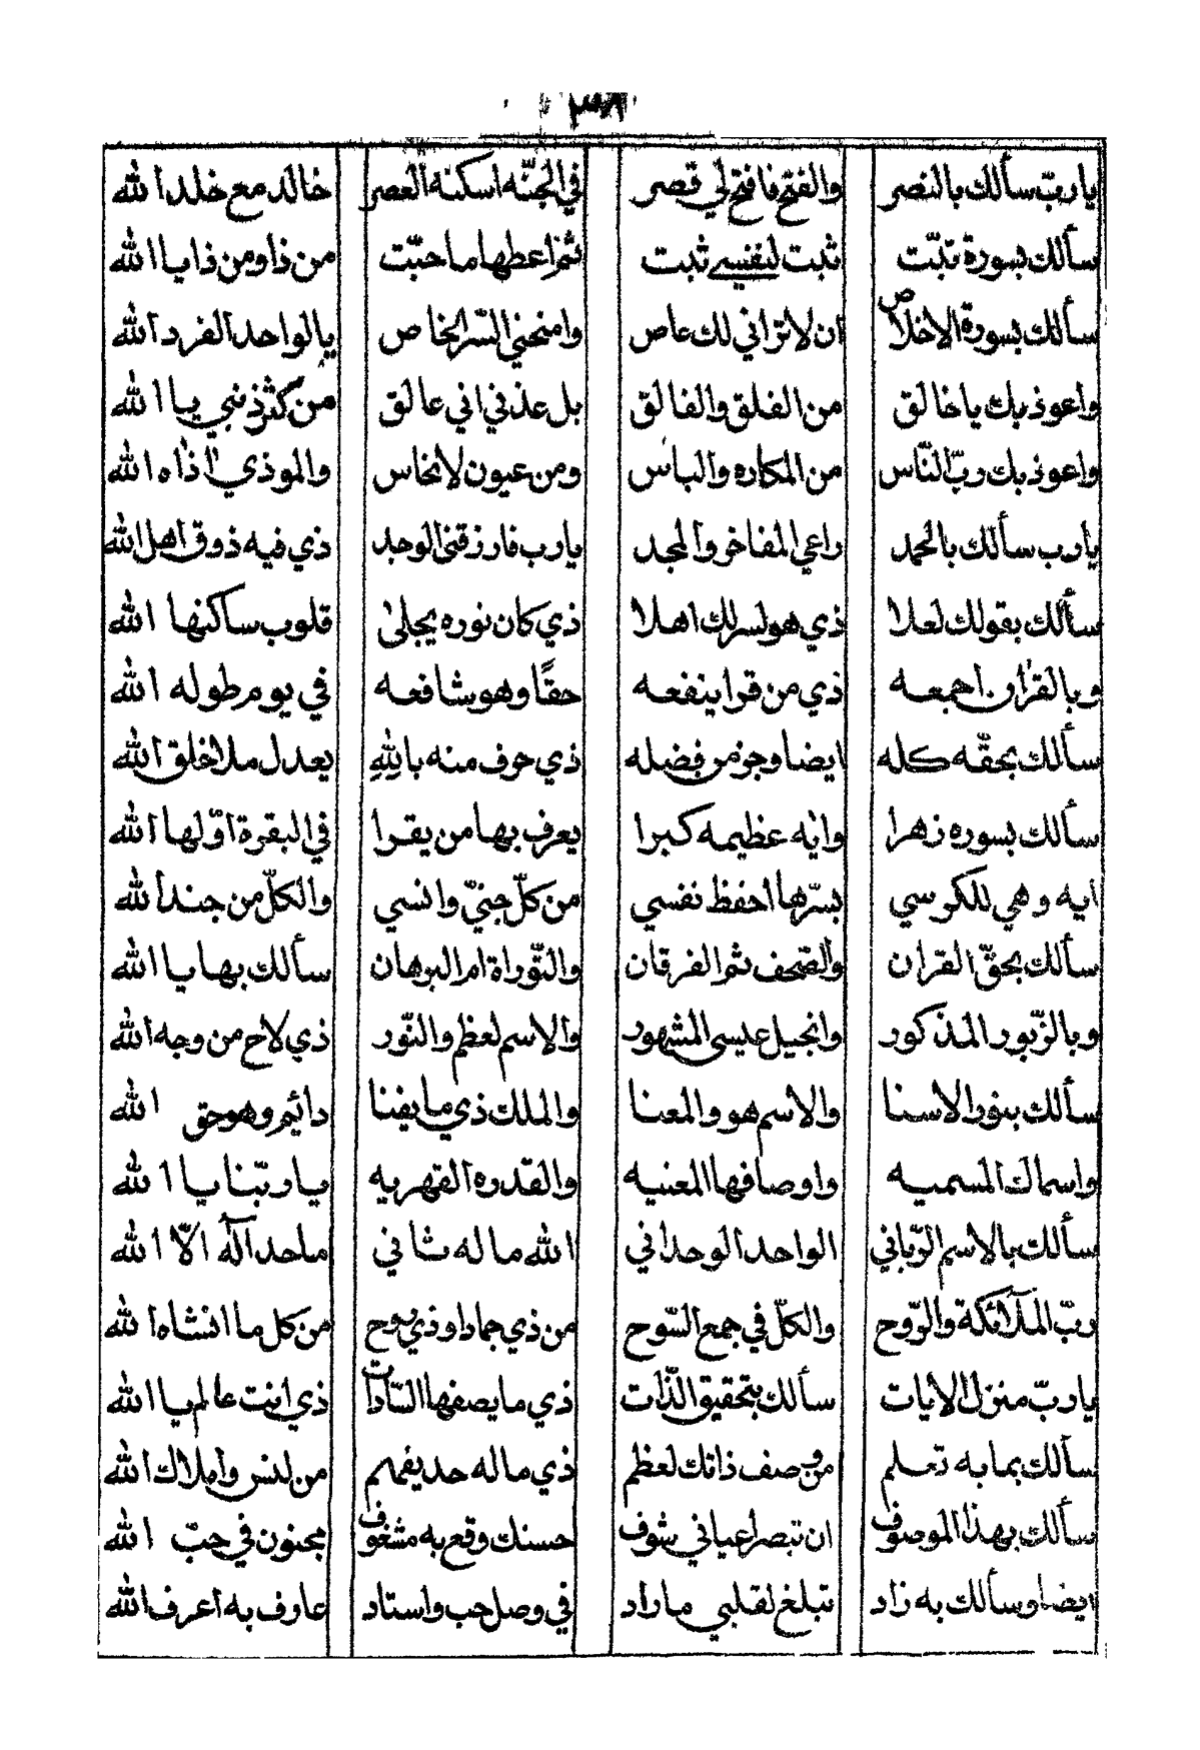 يارب سألك بالنصر والفتح فافتح لي قصر في الجنّه اسكنه العصر خالد مع خلد الله
سألك بسورة تبّت ثبت لنفسي ثبت ثم اعطها ما حبّت من ذا ومن ذا يا الله
سألك بسورة الاخلاص ان لا تراني لك عاص وامنحني السّر الخاص يا لواحد الفرد الله
واعوذ بك يا خالق من الفلق والفالق بل عذني اني عالق من كثر ذنبي يا الله
واعوذ بك ربّ النّاس من المكاره والباس ومن عيون لانخاس والموذي اذاه الله
يارب سألك بالحمد راعي المفاخر والمجد يارب فارزقني الوجد ذي فيه ذوق اهل الله
سألك بقولك لعلا ذي هو لسرلك اهلا ذي كان نوره يجلىٰ قلوب ساكنها الله
وبالقران اجمعه ذي من قرا ينفعه حقًا وهو شافعه في يوم طوله الله
سألك بحقّه كله ايضا وجز من فضله ذي حرف منه بالله يعدل ملا خلق الله
سألك بسوره زهرا وايه عظيمه كبرا يعرف بها من يقرا في البقرة اوّلها الله
ايه وهي للكرسي بسّرها احفظ نفسي من كلّ جنيّ وانسي والكلّ من جند الله
سألك بحقّ القران والصّحف ثم الفرقان والتّوراة ام البرهان سألك بها يا الله
وبالزّبور المذكور وانجيل عيسى المشهور والاسم لعظم والنّور ذي لاح من وجه الله
سألك بنور الاسنا والاسم هو والمعنا والملك ذي ما يفنا دائيم وهو حق الله
واسماك المسميه واوصافها المعنيه والقدره القهريه يا ربّنا يا الله
سألك بالاسم الرّباني الواحد الوحداني الله ما له ثاني ما حد آله الّا الله
ربّ الملآئكة والرّوح والكلّ في جمع السّوح من ذي جماد اوذي روح من كل ما انشاه الله
ياربّ منزل الايات سألك بتحقيق الذّات ذي ما يصفها السّادات ذي انت عالم يا الله
سألك بما به تعلم من وصف ذاتك لعظم ذي ما له حد يفهم من لنس واملاك الله
سألك بهذا الموصوف ان تبصر اعياني شوف حسنك وقع به مشغوف مجنون في حبّ الله
ايضا وسألك به زاد تبلغ لقلبي ما راد في وصل حب واستاد عارف به اعرف الله